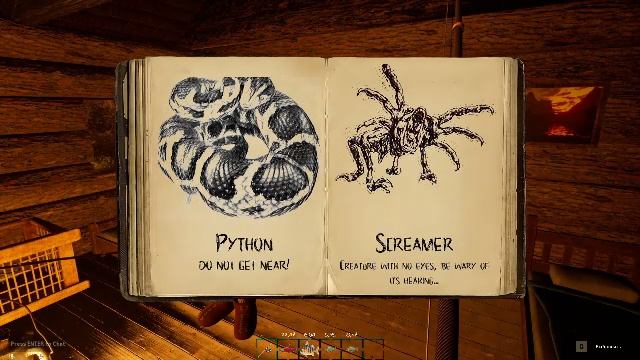 PYTHON
DO NOT GET NEAR!
SCREAMER
CREATURE WITH NO EYES, BE WARY OF
ITS HEARING...
Press ENTER to Chat